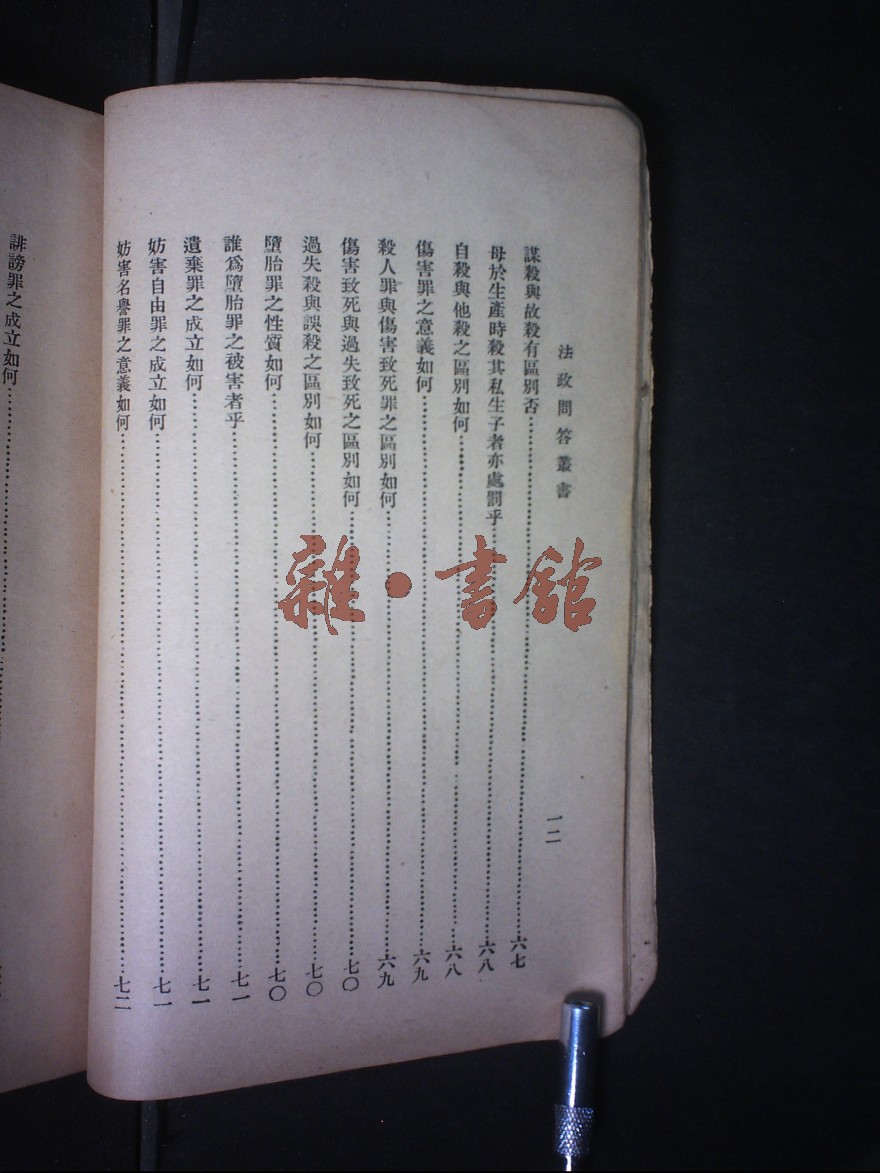 法政問答叢書
一二
謀殺與故殺有區別否……………………六七
母於生產時殺其私生子者亦處罰乎……………………六八
自殺與他殺之區別如何……………………六八
傷害罪之意義如何……………………六九
殺人罪與傷害致死罪之區別如何……………………六九
傷害致死與過失致死之區別如何……………………七〇
過失殺與誤殺之區別如何……………………七〇
墮胎罪之性質如何……………………七〇
誰爲墮胎罪之被害者乎……………………七一
遺棄罪之成立如何……………………七一
妨害自由罪之成立如何……………………七一
妨害名譽罪之意義如何……………………七二
誹謗罪之成立如何……………………
雜·書館